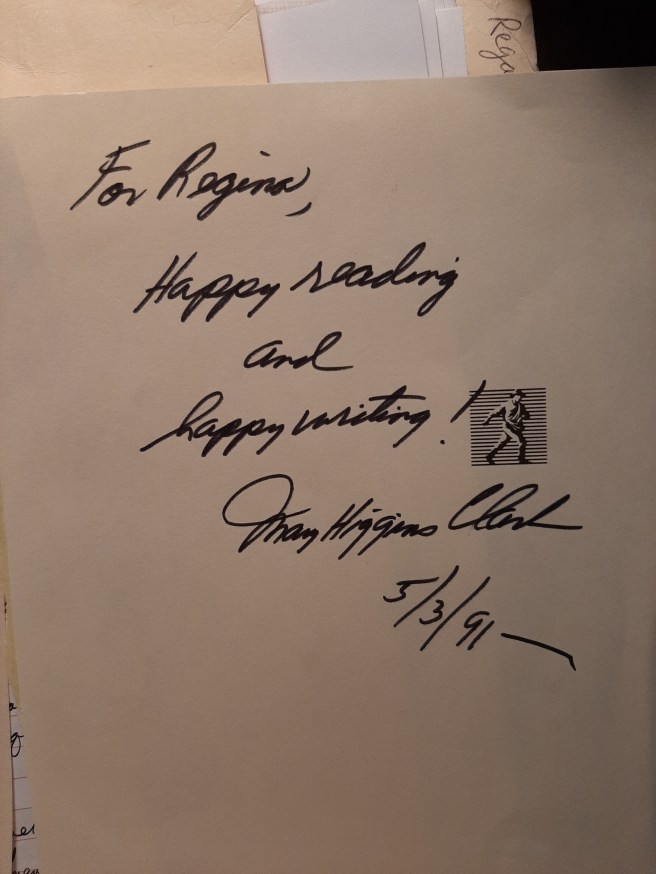 For Regina,
Happy reading
and
happy writing!
Mary Higgins Clark
5/3/91